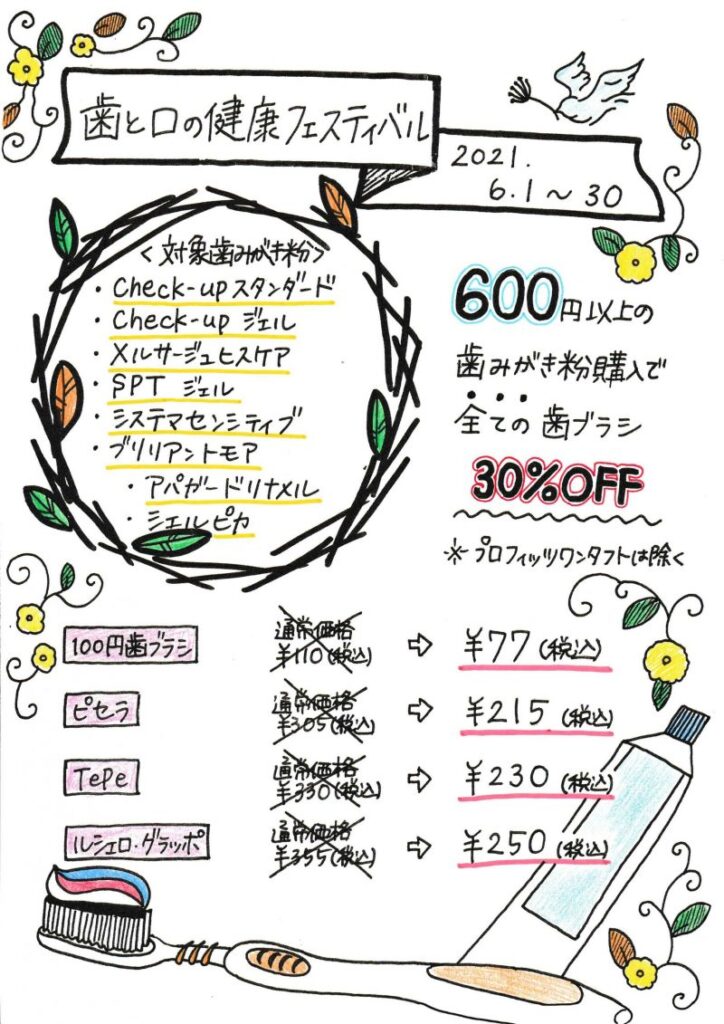 歯と口の健康フェスティバル
2021.
6.1〜30
<対象歯みがき粉>
・Check-upスタンダード
・Check-up ジェル
・メルサージュヒスケア
・SPT ジェル
・システマセンシティブ
・ブリリアントモア
・アパガードリナメル
・シェルピカ
600円以上の
歯みがき粉購入で
全ての歯ブラシ
30%OFF
※プロフィッツワンタフトは除く
100円歯ブラシ
通常価格
¥110(税込)
⇨ ¥77(税込)
ピセラ
通常価格
¥305(税込)
⇨ ¥215(税込)
TePe
通常価格
¥330(税込)
⇨ ¥230(税込)
ルシェロ・グラッポ
通常価格
¥355(税込)
⇨ ¥250(税込)